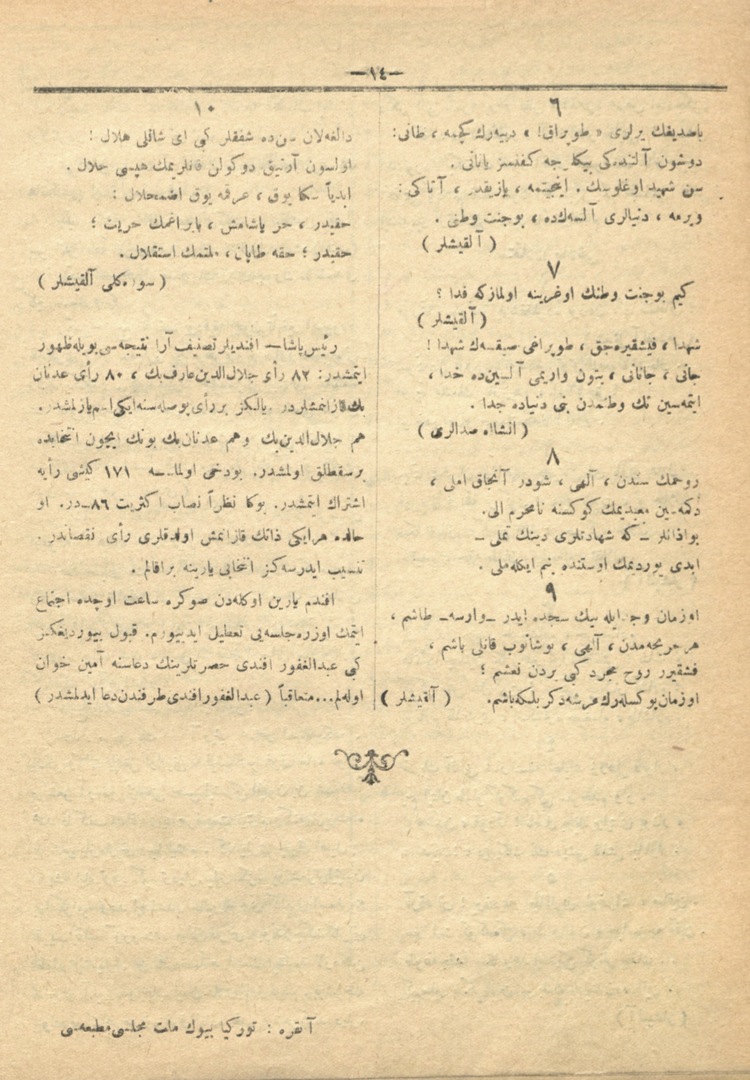 —١٤—
٦
باصديغك يرلرى «طوپراق!» دييه‌رك كچمه ، طانى:
دوشون آلتنده‌كى بيكلرجه كفنسز ياتانى .
سن شهيد اوغلوسك . اينجيتمه ، يازيقدر ، آتاكى :
ويرمه ، دنيالرى آلسه‌ك‌ده ، بوجنت وطنى .
( آلقيشلر )
٧
كيم بوجنت وطنك اوغرينه اولمازكه فدا ؟
( آلقيشلر )
شهدا ، فيشقيره‌جق ، طوپراغى صيقسه‌ك شهدا !
جانى ، جانانى ، بتون واريمى آلسين‌ده خدا ،
ايتمه‌سين تك وطنمدن بنى دنياده جدا .
( انشاالله صدالرى )
٨
روحمك سندن ، آلهى ، شودر آنجاق املى ،
دكمه‌سين معبديمك كوكسنه نامحرم الى.
بواذانلر — كه شهادتلرى دينك تملى —
ابدى يورديمك اوستنده بنم ايكله‌ملى .
٩
اوزمان وجدايله بيك سجده ايدر —وارسه— طاشم ،
هرجريحه‌مدن ، آلهى ، بوشانوب قانلى ياشم ،
فشقيرر روح مجرد كبى يردن نعشم ؛
اوزمان يوكسله‌رك عرشه‌دكر بلكه‌باشم. ( آلقيشلر )
١٠
دالغه‌لان سن‌ده شفقلر كبى اى شانلى هلال !
اولسون آرتيق دوكولن قانلريمك هپسى حلال .
ابدياً سكا يوق ، عرقمه يوق اضمحلال :
حقيدر ، حر ياشامش ، بايراغمك حريت ؛
حقيدر ؛ حقه طاپان ، ملتمك استقلال .
( سوره‌كلى آلقيشلر )
رئيس پاشا — افنديلر تصنيف آرا نتيجه‌سى بويله ظهور
ايتمشدر: ٨٢ رأى جلال‌الدين عارف‌بك ، ٨٠ رأى عدنان
بك قازانمشلردر. يالكز بررأى پوصله‌سنه ايكى اسم يازلمشدر.
هم جلال‌الدين‌بك وهم عدنان‌بك بونك ايچون انتخابده
برسقطلق اولمشدر. بودخى اولماسه ١٧١ كيشى رأيه
اشتراك ايتمشدر. بوكا نظراً نصاب اكثريت ٨٦در. او
حالده هرايكى ذاتك قازانمش اولدقلرى رأى نقصاندر .
تنسيب ايدرسه‌كز انتخابى يارينه براقالم .
افندم يارين اوكله‌دن صوكره ساعت اوچده اجتماع
ايتمك اوزره جلسه‌يى تعطيل ايديورم. قبول بيورديغكز
كبى عبدالغفور افندى حضرتلرينك دعاسنه آمين خوان
اوله‌لم...متعاقباً ( عبدالغفور افندى طرفندن دعا ايدلمشدر )
آنقره : توركيا بيوك ملت مجلسى مطبعه‌سى